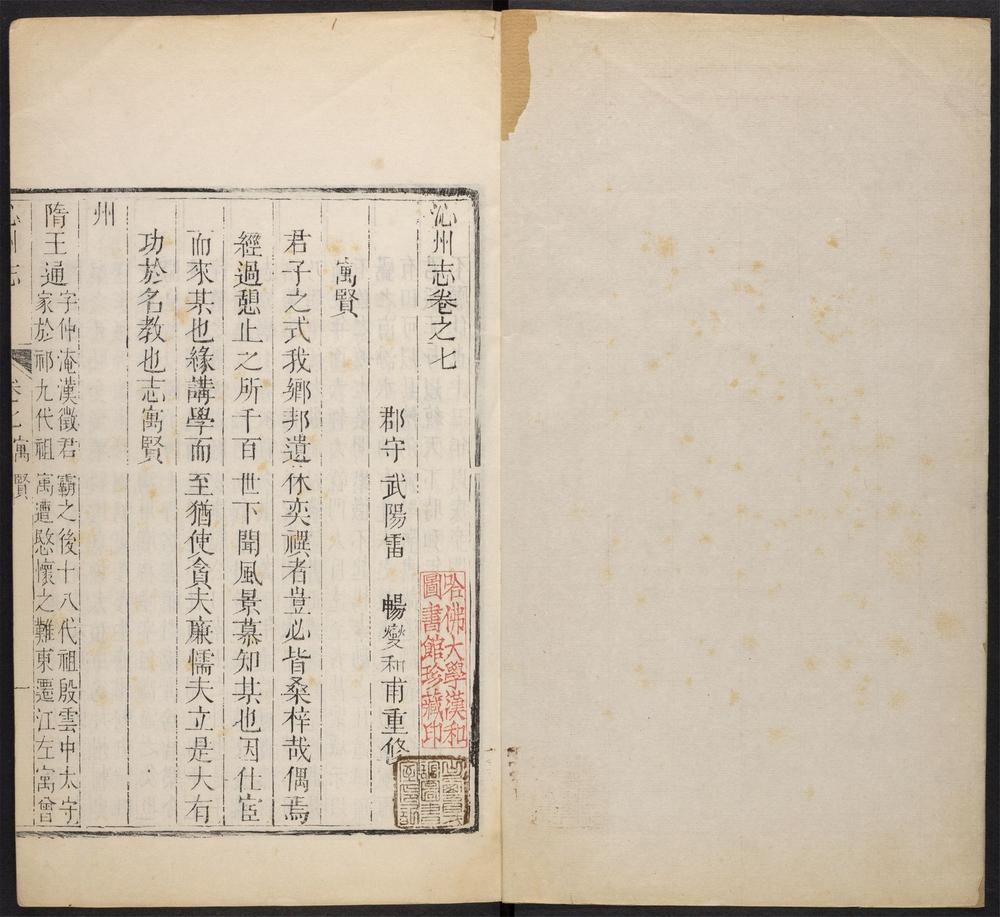 沁州志卷之七
郡守武陽雷暢燮和甫重修
寓賢
君子之式我鄉邦遺休奕禩者豈必皆桑梓哉偶焉
經過憇止之所千百世下聞風景慕知某也因仕宦
而來某也緣講學而至猶使貪夫廉懦夫立是大有
功於名教也志寓賢
州
隋王通
字仲淹漢徵君霸之後十八代祖殷雲中太守
家於祁九代祖寓遭愍懷之難東遷江左寓曾
沁州志
卷之七
寓賢
一
哈佛大學漢和
圖書館珍藏印